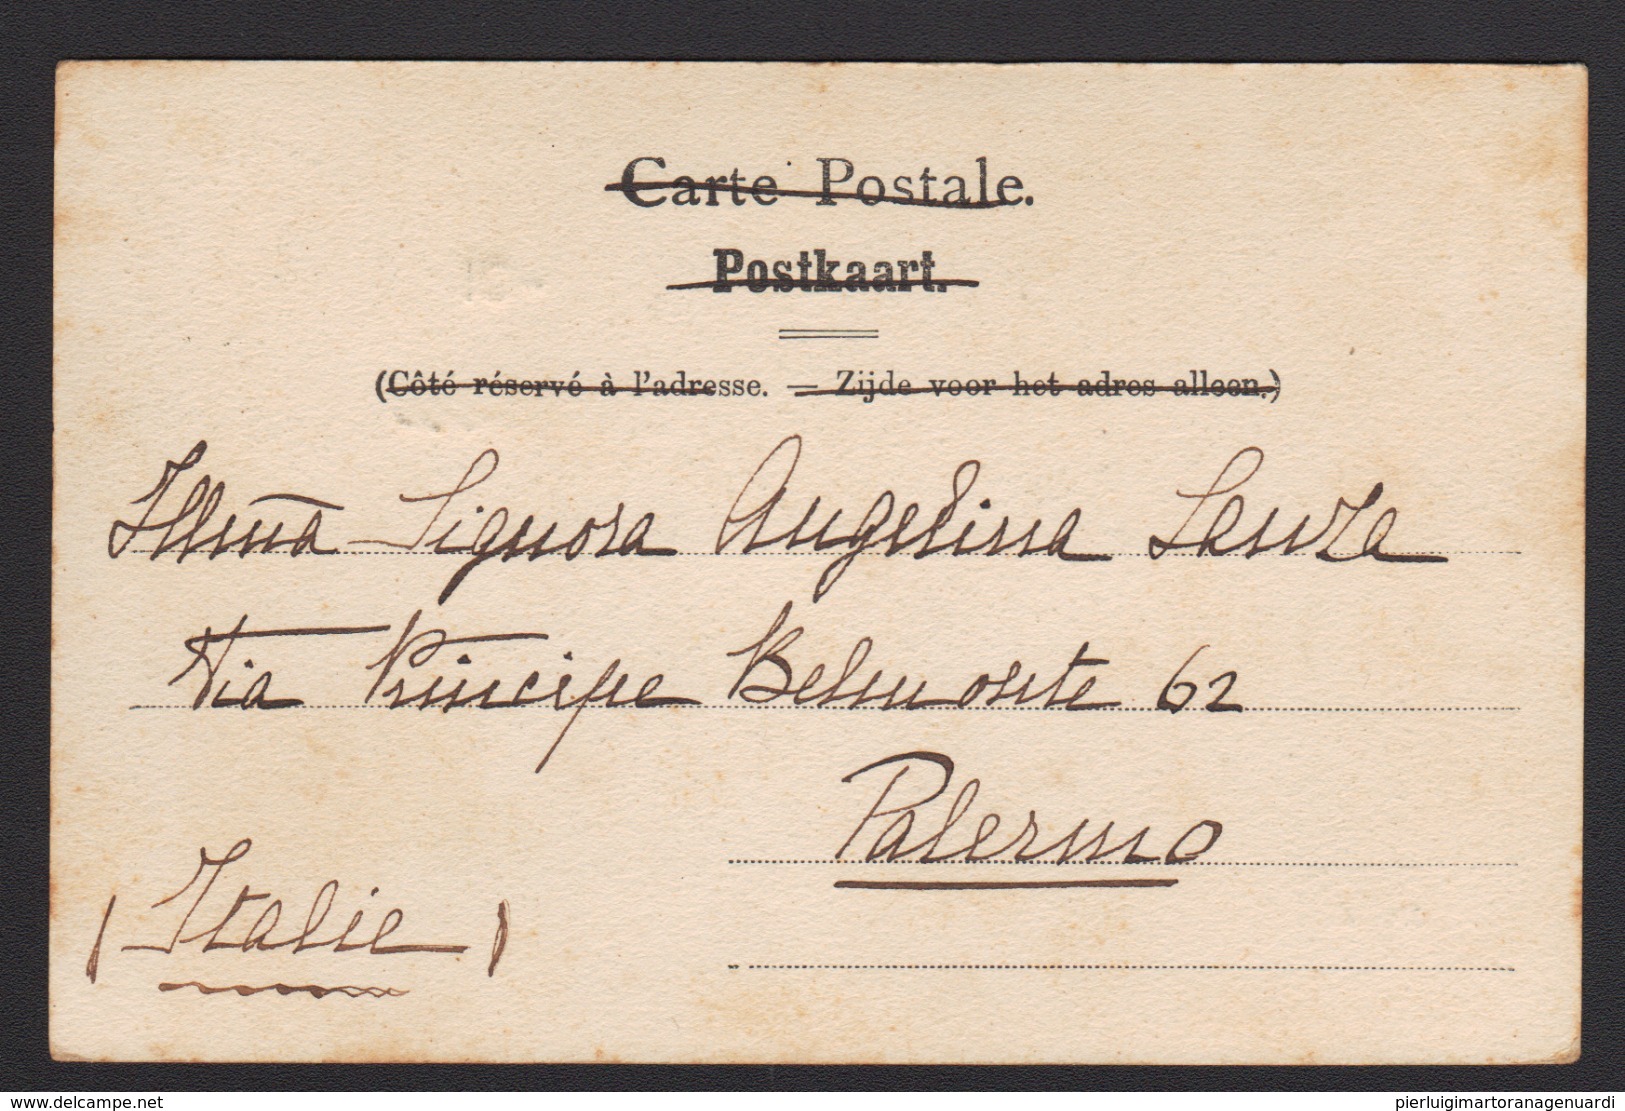 Carte Postale.
Postkaart.
(Côté réservé à l'adresse. — Zijde voor het adres alleen.)
Illm̃a Signora Angelina Lanza
Via Principe Belmonte 62
Palermo
(Italie)
www.delcampe.net
pierluigimartoranagenuardi